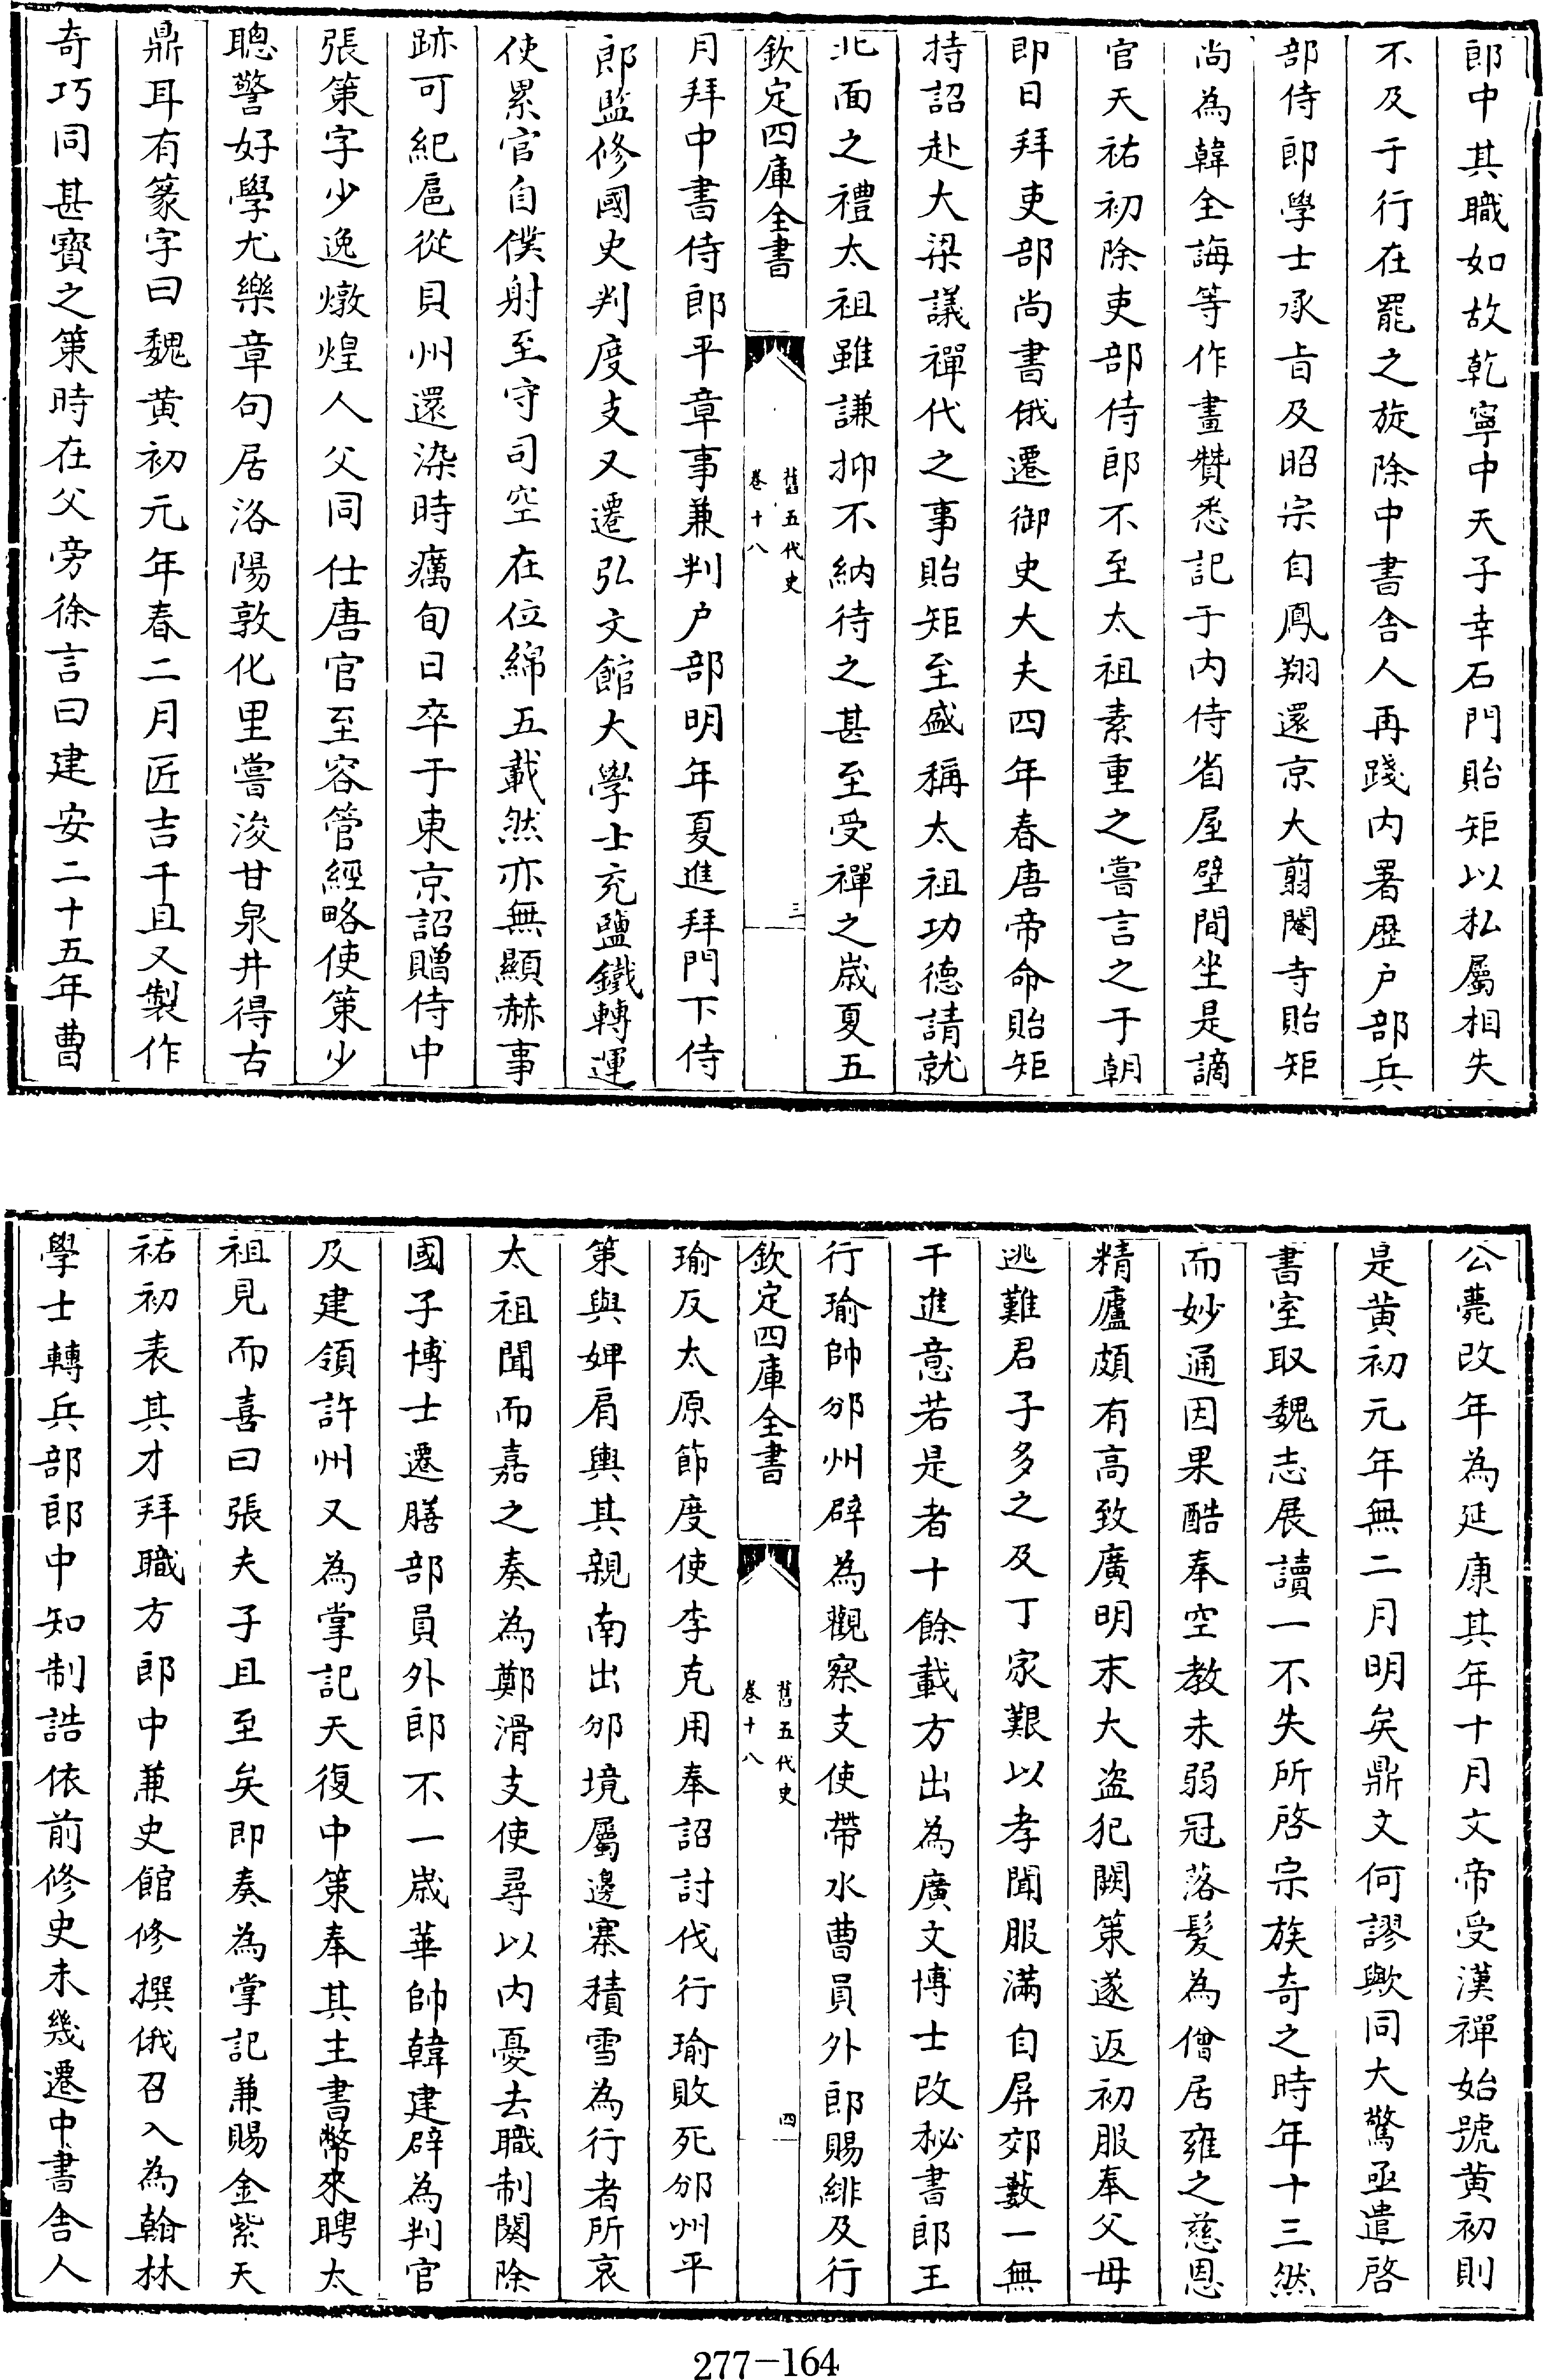 郎中其職如故乾寧中天子幸石門貽矩以私屬相失
不及于行在罷之旋除中書舎人再踐内署歴户部兵
部侍郎學士承㫖及昭宗自鳳翔還京大翦閹寺貽矩
尚為韓全誨等作畫贊悉記于内侍省屋壁間坐是謫
官天祐初除吏部侍郎不至太祖素重之嘗言之于朝
即日拜吏部尚書俄遷御史大夫四年春唐帝命貽矩
持詔赴大梁議禪代之事貽矩至盛稱太祖功德請就
北面之禮太祖雖謙抑不納待之甚至受禪之歲夏五
欽定四庫全書
舊五代史
卷十八
三
月拜中書侍郎平章事兼判户部明年夏進拜門下侍
郎監修國史判度支又遷弘文館大學士充鹽鐵轉運
使累官自僕射至守司空在位綿五載然亦無顯赫事
跡可紀扈從貝州還染時癘旬日卒于東京詔贈侍中
張策字少逸燉煌人父同仕唐官至容管經略使策少
聰警好學尤樂章句居洛陽敦化里嘗浚甘泉井得古
鼎耳有篆字曰魏黄初元年春二月匠吉千且又製作
奇巧同甚寳之策時在父旁徐言曰建安二十五年曹
公薨改年為延康其年十月文帝受漢禪始號黄初則
是黄初元年無二月明矣鼎文何謬歟同大驚亟遣啓
書室取魏志展讀一不失所啓宗族奇之時年十三然
而妙通因果酷奉空教未弱冠落髮為僧居雍之慈恩
精廬頗有高致廣明末大盗犯闕策遂返初服奉父母
逃難君子多之及丁家艱以孝聞服滿自屏郊藪一無
干進意若是者十餘載方出為廣文博士改秘書郎王
行瑜帥邠州辟為觀察支使帶水曹員外郎賜緋及行
欽定四庫全書
舊五代史
卷十八
四
瑜反太原節度使李克用奉詔討伐行瑜敗死邠州平
策與婢肩輿其親南出邠境屬邊寨積雪為行者所哀
太祖聞而嘉之奏為鄭滑支使尋以内憂去職制闋除
國子博士遷膳部員外郎不一歲華帥韓建辟為判官
及建領許州又為掌記天復中策奉其主書幣來聘太
祖見而喜曰張夫子且至矣即奏為掌記兼賜金紫天
祐初表其才拜職方郎中兼史館修撰俄召入為翰林
學士轉兵部郎中知制誥依前修史未幾遷中書舎人
277-164